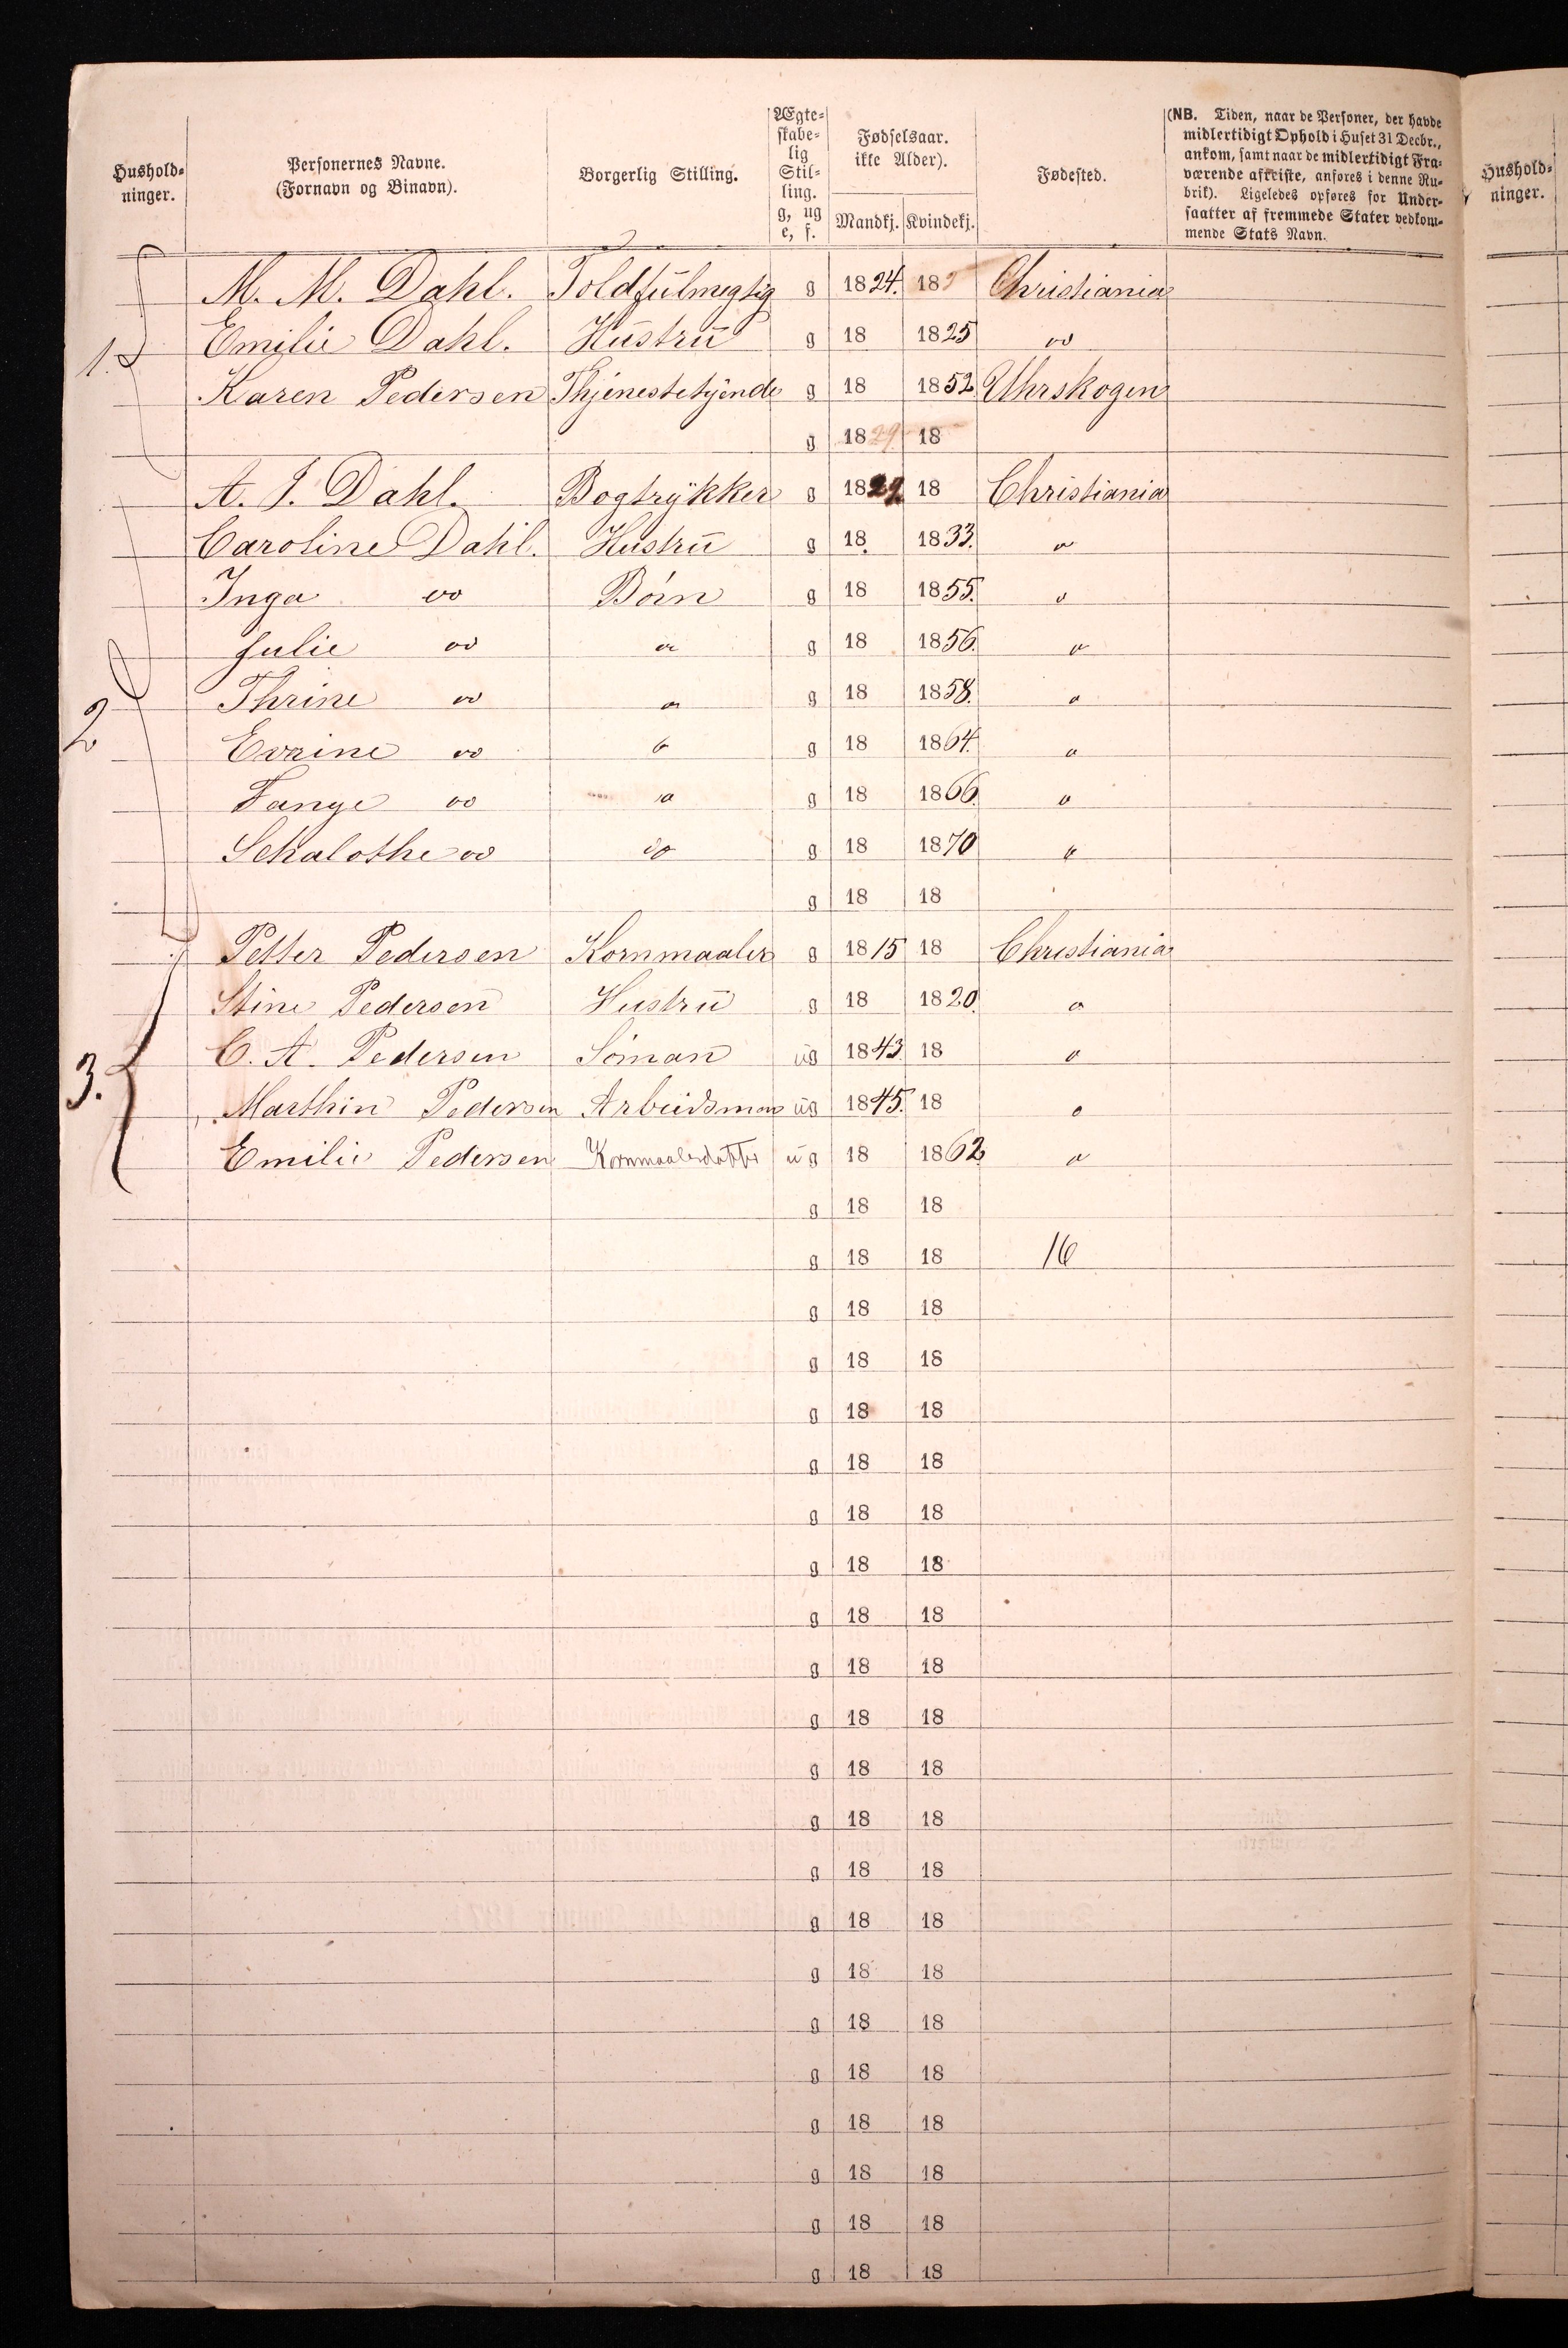 Hushold-
ninger.
Personernes Navne.
(Fornavn og Binavn).
Borgerlig Stilling.
Ægte-
skabe-
lig
Stil-
ling.
g, ug
e, f.
Fødselsaar.
ikke Alder).
Mandkj. Kvindekj.
Fødested.
(NB. Tiden, naar de Personer, der havde
midlertidigt Ophold i Huset 31 Decbr.,
ankom, samt naar de midlertidigt Fra-
værende afreiste, anføres i denne Ru-
brik). Ligeledes opføres for Under-
saatter af fremmede Stater vedkom-
mende Stats Navn.
Hushold-
ninger.
M. M. Dahl. Toldfulmegtig g 1824. 18 Christiania
1. Emilie Dahl. Hustru g 18 1825 do
Karen Pedersen Thjenestetyende g 18 1852 Uhrskogen
g 1829 18
A. J. Dahl. Bogtrykker g 1829 18 Christiania
Caroline Dahl. Hustru g 18 1833. do
Inga do Börn g 18 1855. do
Julie do do g 18 1856. do
2 Thrine do do g 18 1858. do
Evrine do do g 18 1864. do
Fange do do g 18 1866. do
Schalothe do do g 18 1870 do
g 18 18
Petter Pedersen Kornmaaler g 1815 18 Christiania
Stine Pedersen Hustru g 18 1820. do
3. C. A. Pedersen Söman ug 1843. 18 do
Marthin Pedersen Arbeidsman ug 1845. 18 do
Emilie Pedersen Kornmaalerdatter ug 18 1862 do
g 18 18
g 18 18 16
g 18 18
g 18 18
g 18 18
g 18 18
g 18 18
g 18 18
g 18 18
g 18 18
g 18 18
g 18 18
g 18 18
g 18 18
g 18 18
g 18 18
g 18 18
g 18 18
g 18 18
g 18 18
g 18 18
g 18 18